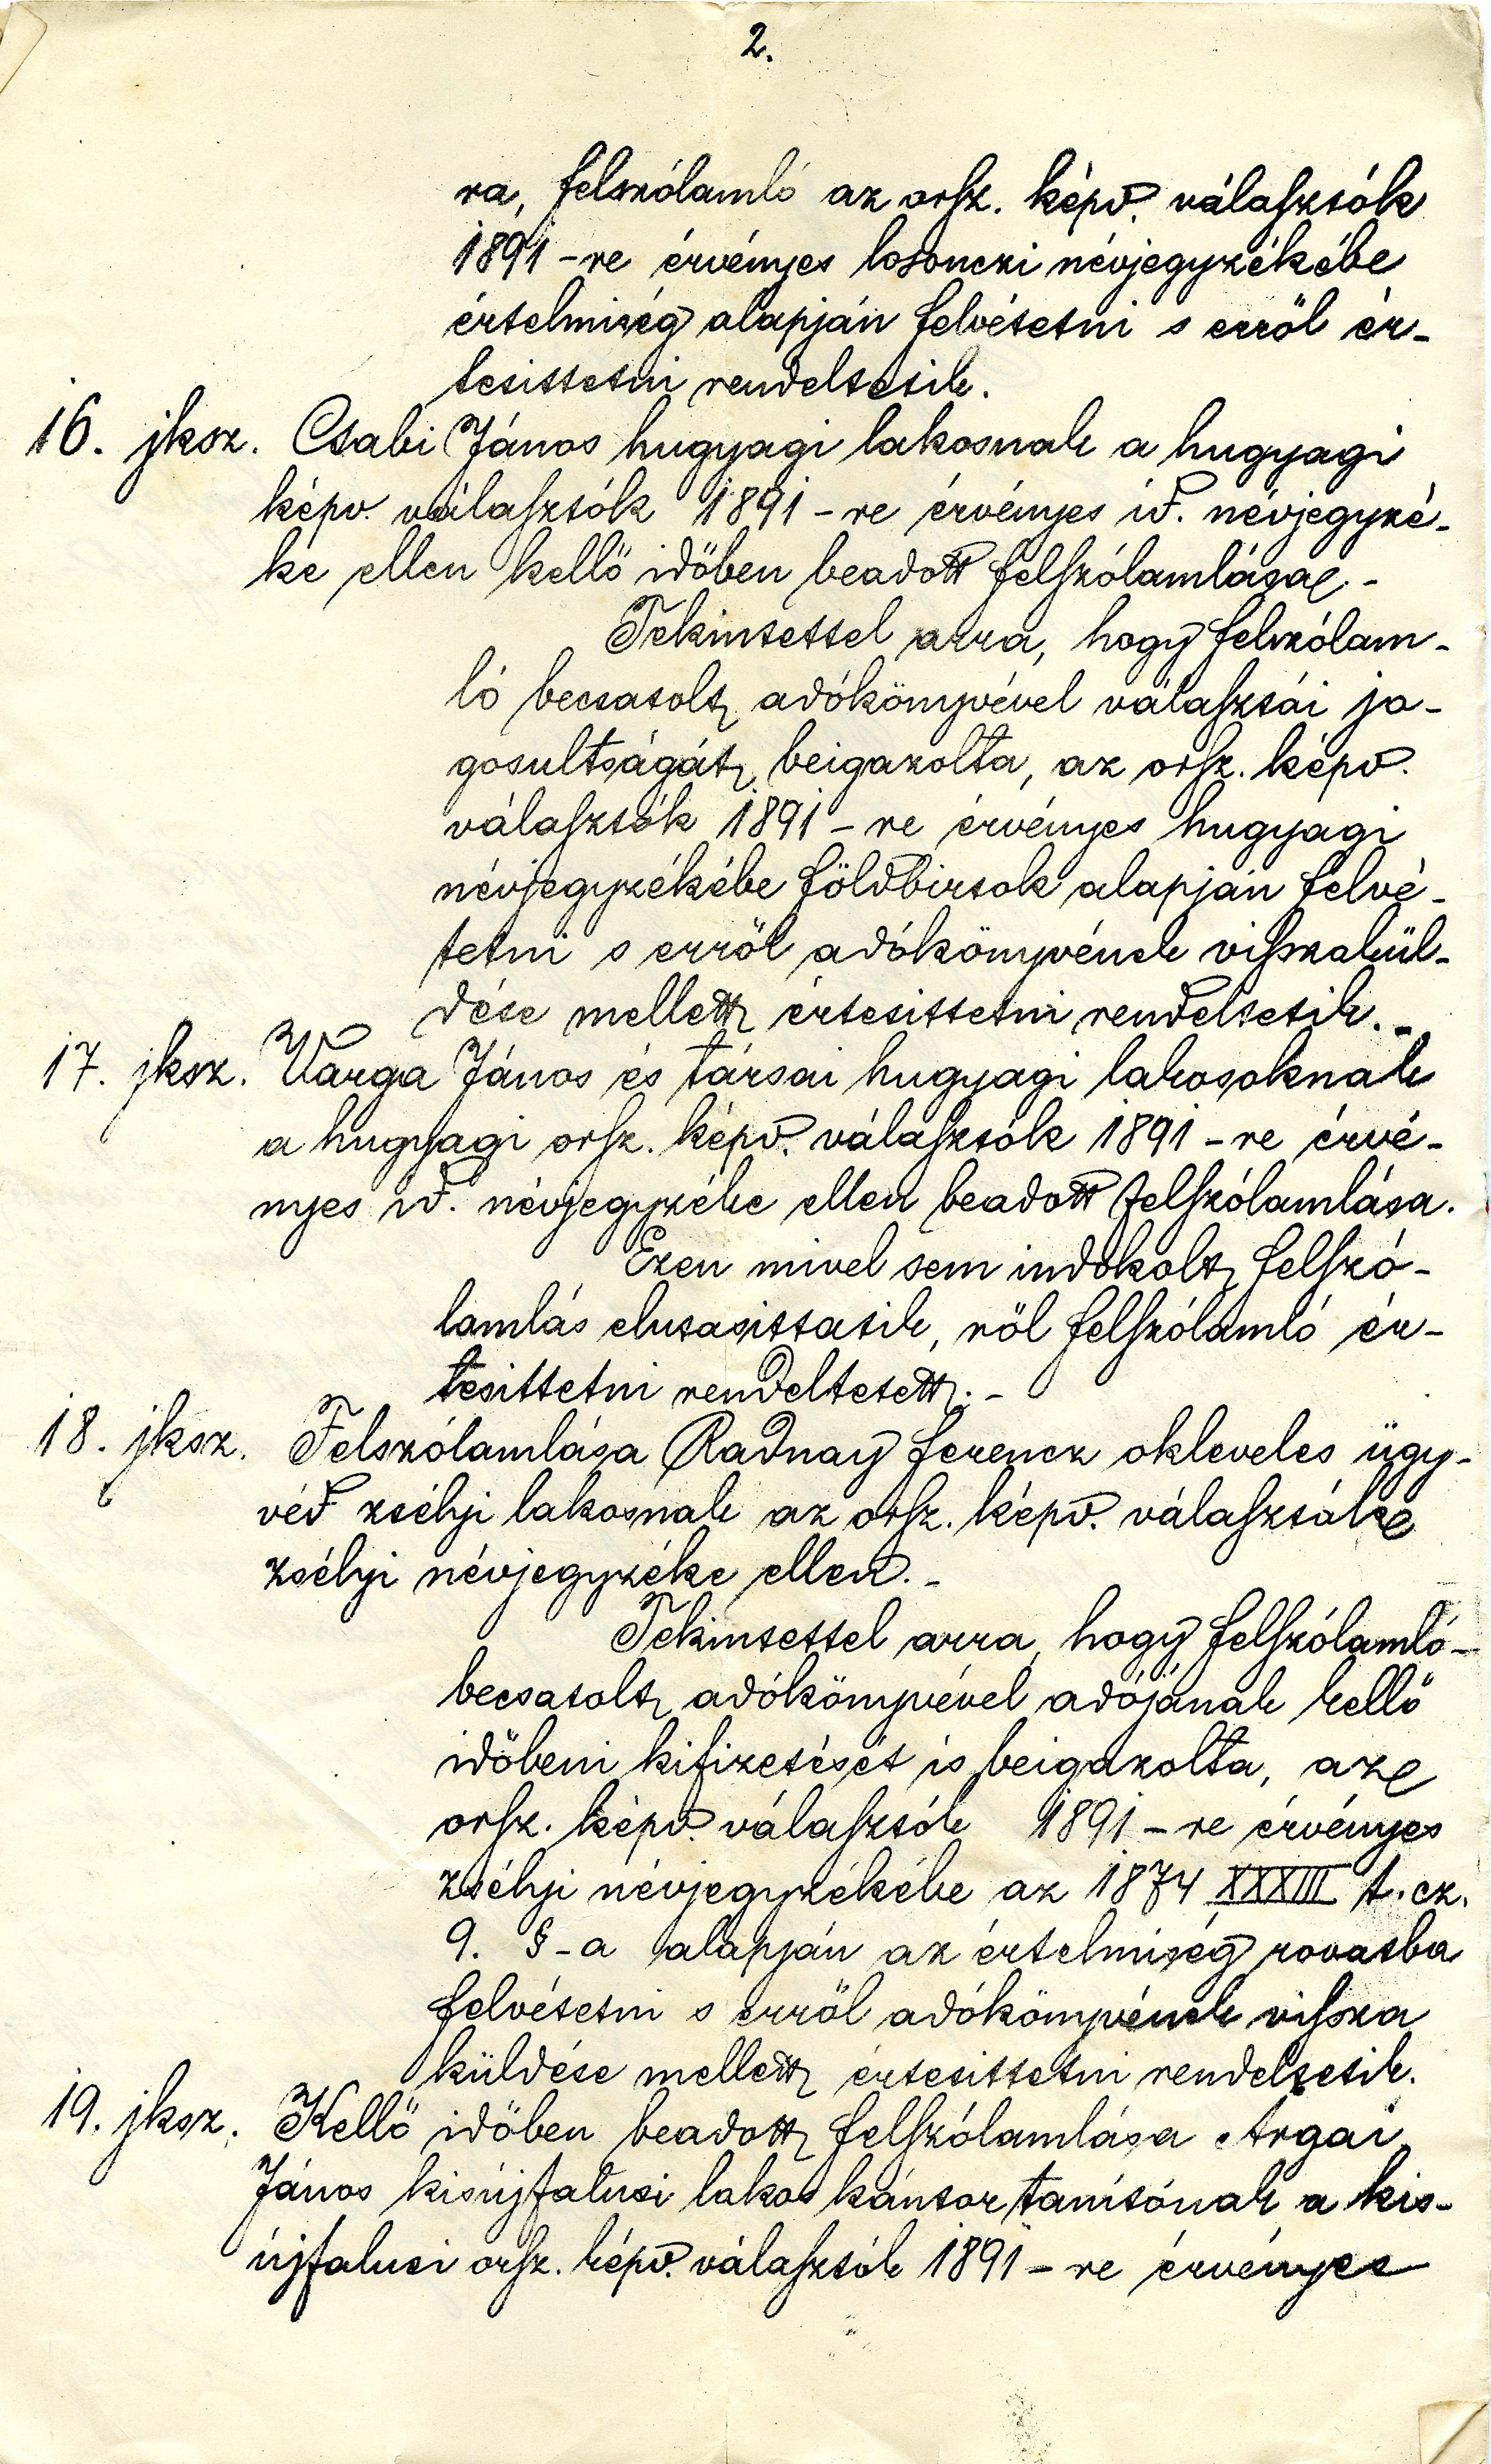 2.
ra, felszólamló az orsz. képv. választók
1891-re érvényes losonczi névjegyzékébe
értelmiség alapján felvétetni s erről ér-
tesittetni rendeltetik.
16. jksz. Csabi János hugyagi lakosnak a hugyagi
képv. választók 1891-re érvényes id. névjegyzé-
ke ellen kellő időben beadott felszólamlása.-
Tekintettel arra, hogy felszólam-
ló becsatolt adókönyvével választói jo-
gosultságát beigazolta, az orsz. képv.
választók 1891-re érvényes hugyagi
névjegyzékébe földbirtok alapján felvé-
tetni s erről adókönyvének visszakül-
dése mellett értesittetni rendeltetik.-
17. jksz. Varga János és társai hugyagi lakosoknak
a hugyagi orsz. képv. választók 1891-re érvé-
nyes id. névjegyzéke ellen beadott felszólamlása.
Ezen mivel sem indokolt felszó-
lamlás elutasittatik, ról felszólamló ér-
tesittetni rendeltetett.-
18. jksz. Felszólamlása Radnay ferencz okleveles ügy-
véd zsélyi lakosnak az orsz. képv. választók
zsélyi névjegyzéke ellen.-
Tekintettel arra, hogy felszólamló-
becsatolt adókönyvével adójának kellő
időbeni kifizetését is beigazolta, az
orsz. képv. választók 1891-re érvényes
zsélyi névjegyzékébe az 1874 XXXIII t.cz.
9. §-a alapján az értelmiség rovatba
felvétetni s erről adókönyvének vissza
küldése mellett értesittetni rendeltetik.
19. jksz. Kellő időben beadott felszólamlása Argai
János kisújfalusi lakos kántor tanítónak a kis-
újfalusi orsz. képv. választók 1891-re érvényes